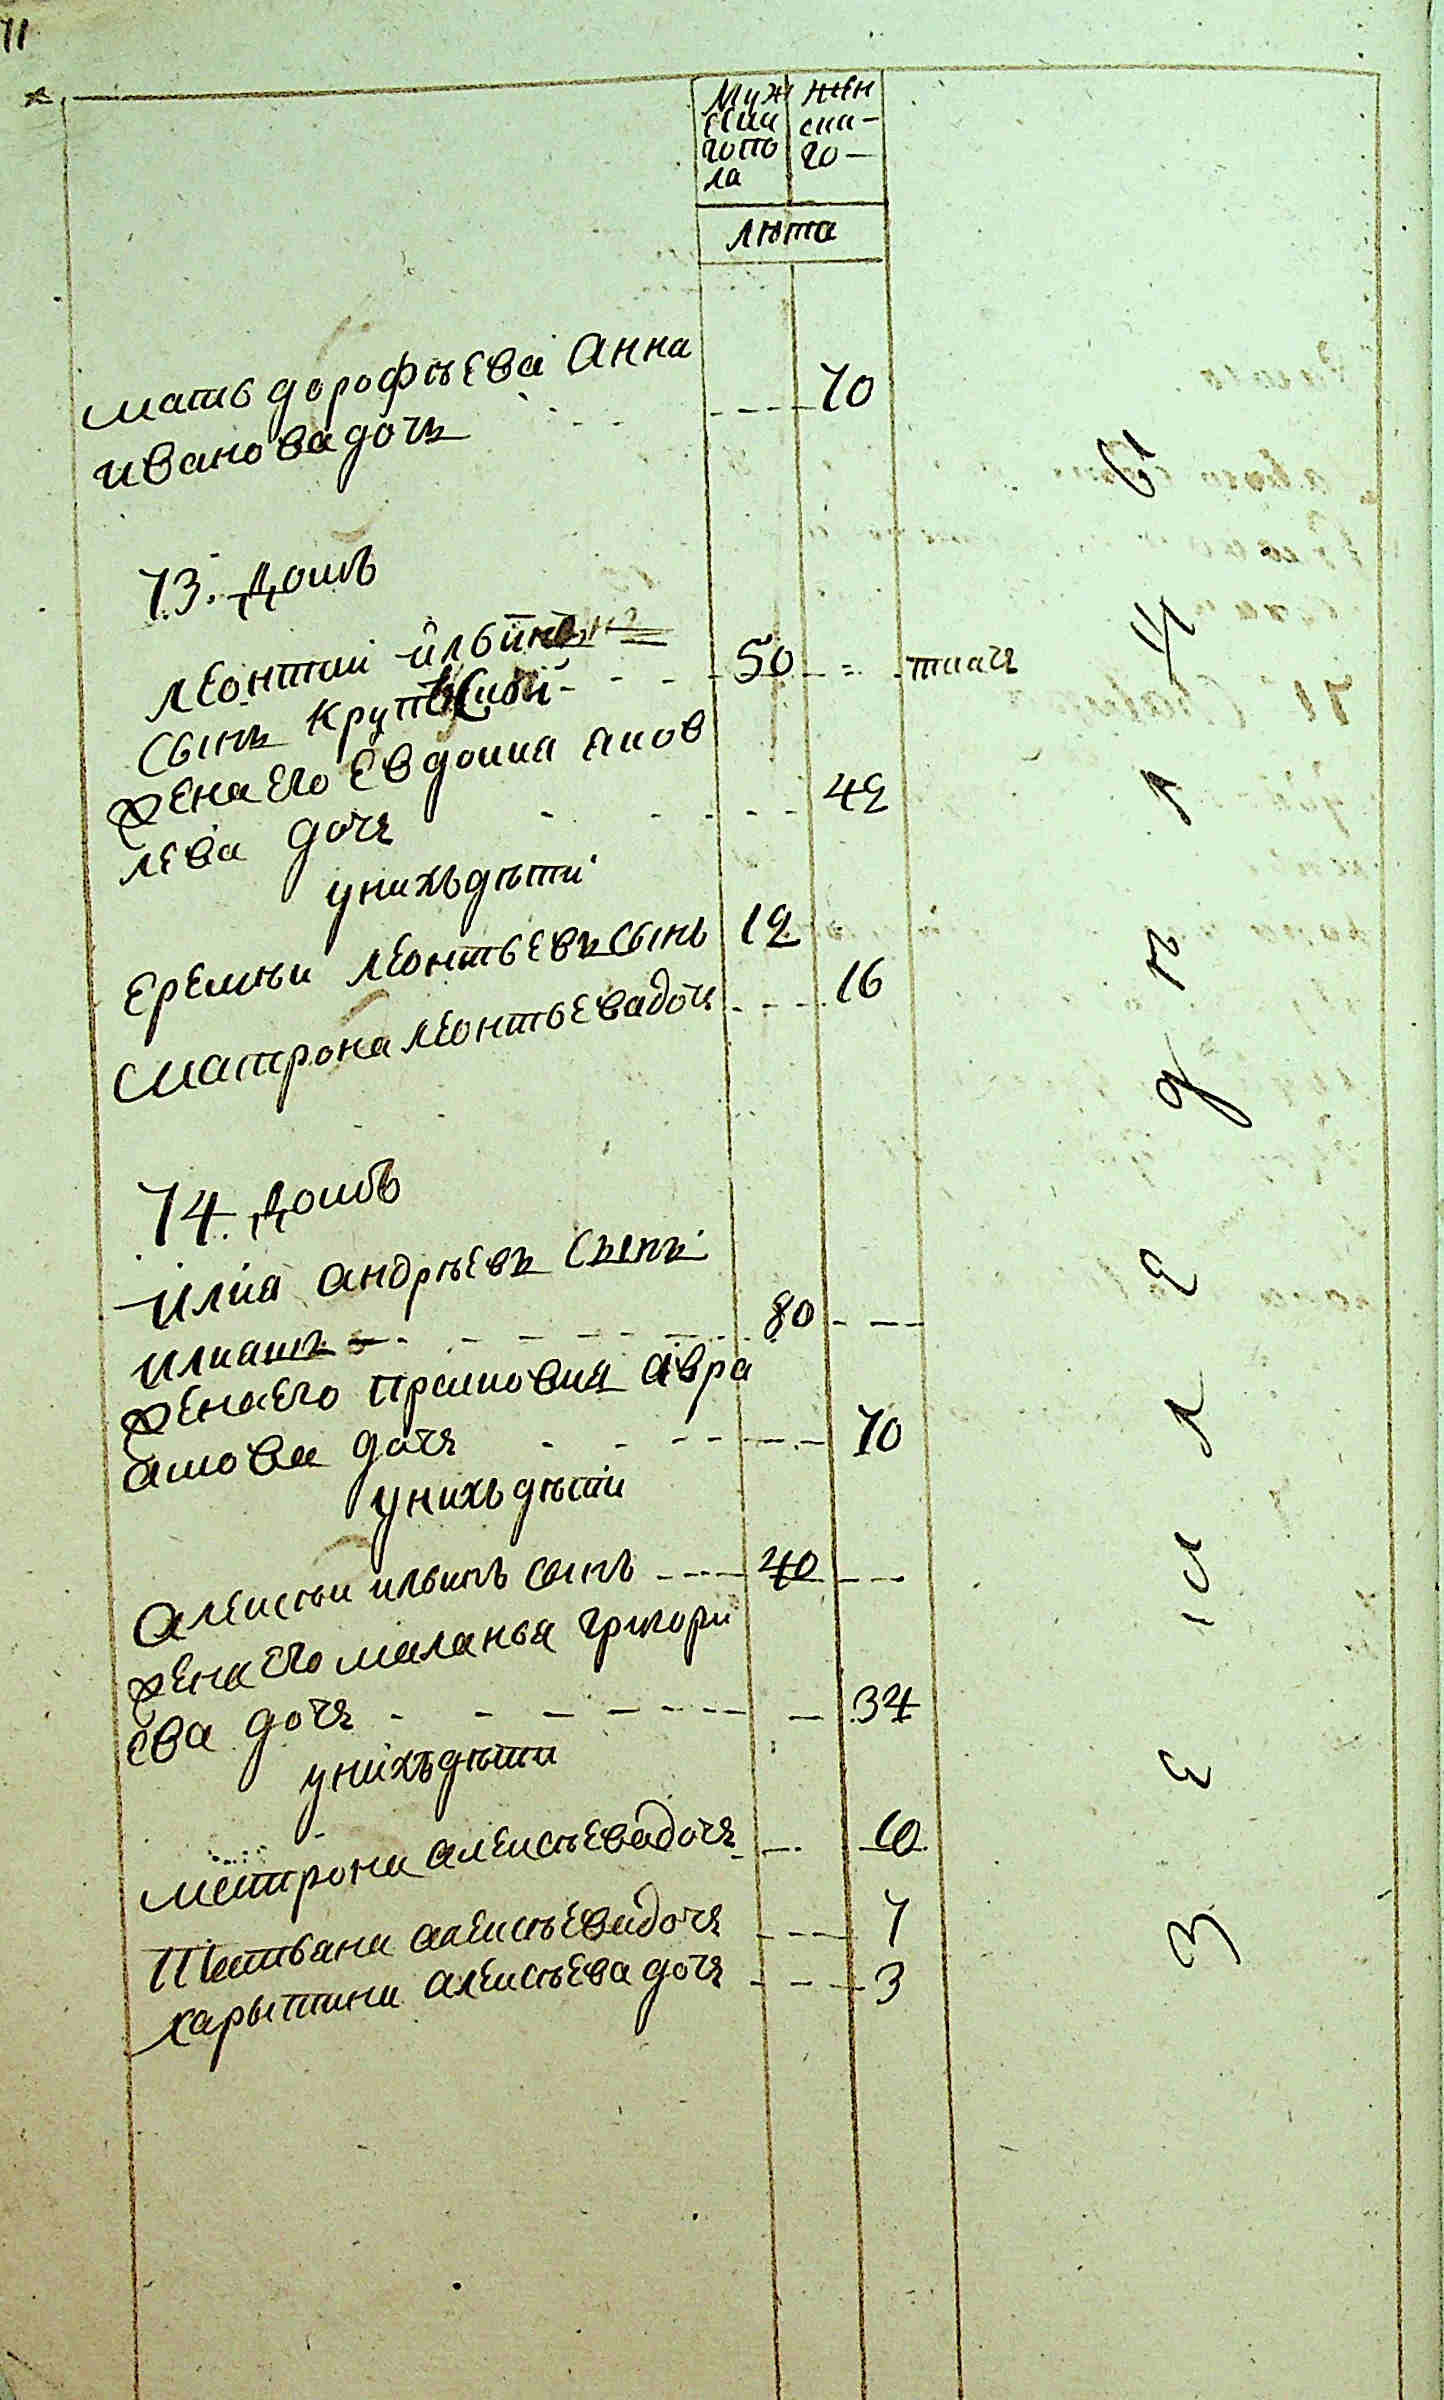 71
Муж
скаго по
ла
жен
ска-
го —
лѣта
мать дорофѣева Анна
иванова дочь 70
73. домъ
леонтии ильинъ
сынъ Крупскои 50 ткачь
жена его Евдокиа яков
лева дочь 42
у нихъ дѣти
еремѣи леонтьевъ сынъ 12
матрона леонтьева дочь 16
74. домъ
илиа андрѣевъ сынъ
илиашъ 80
жена его прасковиа авра
амова дочь 70
у нихъ дѣти
алексѣи ильинъ сынъ 40
жена его маланья григори
ева дочь 34
у нихъ дѣти
матрона алексѣева дочь 10
татьяна алексѣева дочь 7
харытина алексѣева дочь 3
земледѣлцы